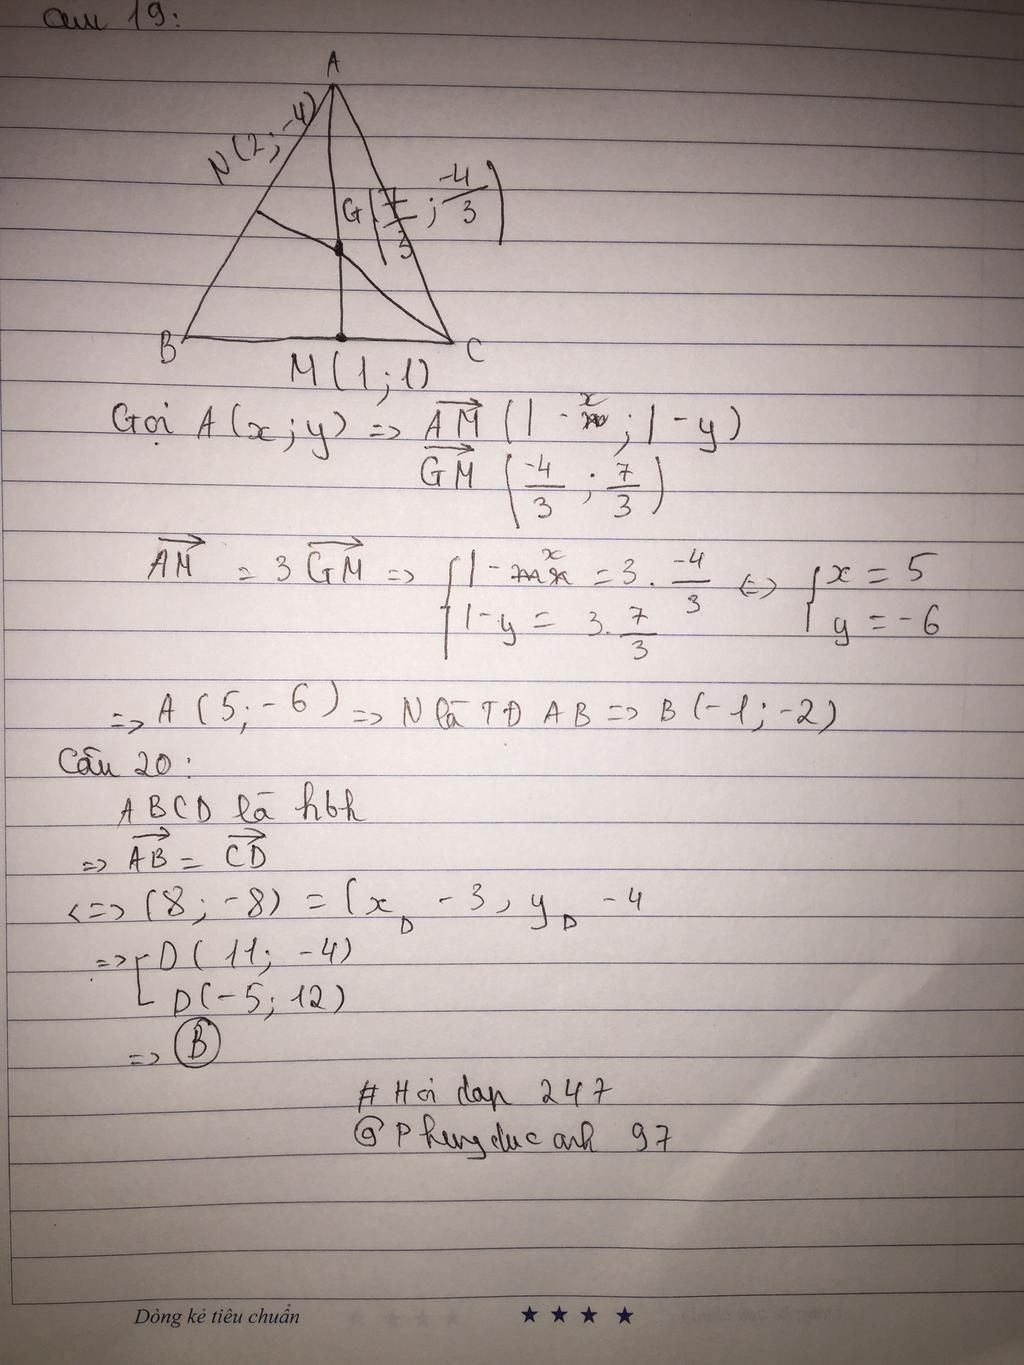 Câu 19:
A
N(2; -4)
G(7/3; -4/3)
B
C
M(1; 1)
Gọi A(x; y) => AM (1 - x; 1 - y)
GM (-4/3; 7/3)
AM = 3 GM => { 1 - x = 3. -4/3 <=> { x = 5
1 - y = 3. 7/3 y = -6
=> A (5; -6) => N là TĐ AB => B(-1; -2)
Câu 20:
ABCD là hbh
=> AB = CD
<=> (8; -8) = (x_D - 3, y_D - 4
=> [ D( 11; -4)
D(-5; 12)
=> B
# Hoi dap 247
@Phungducanh 97
Dòng kẻ tiêu chuẩn ★ ★ ★ ★